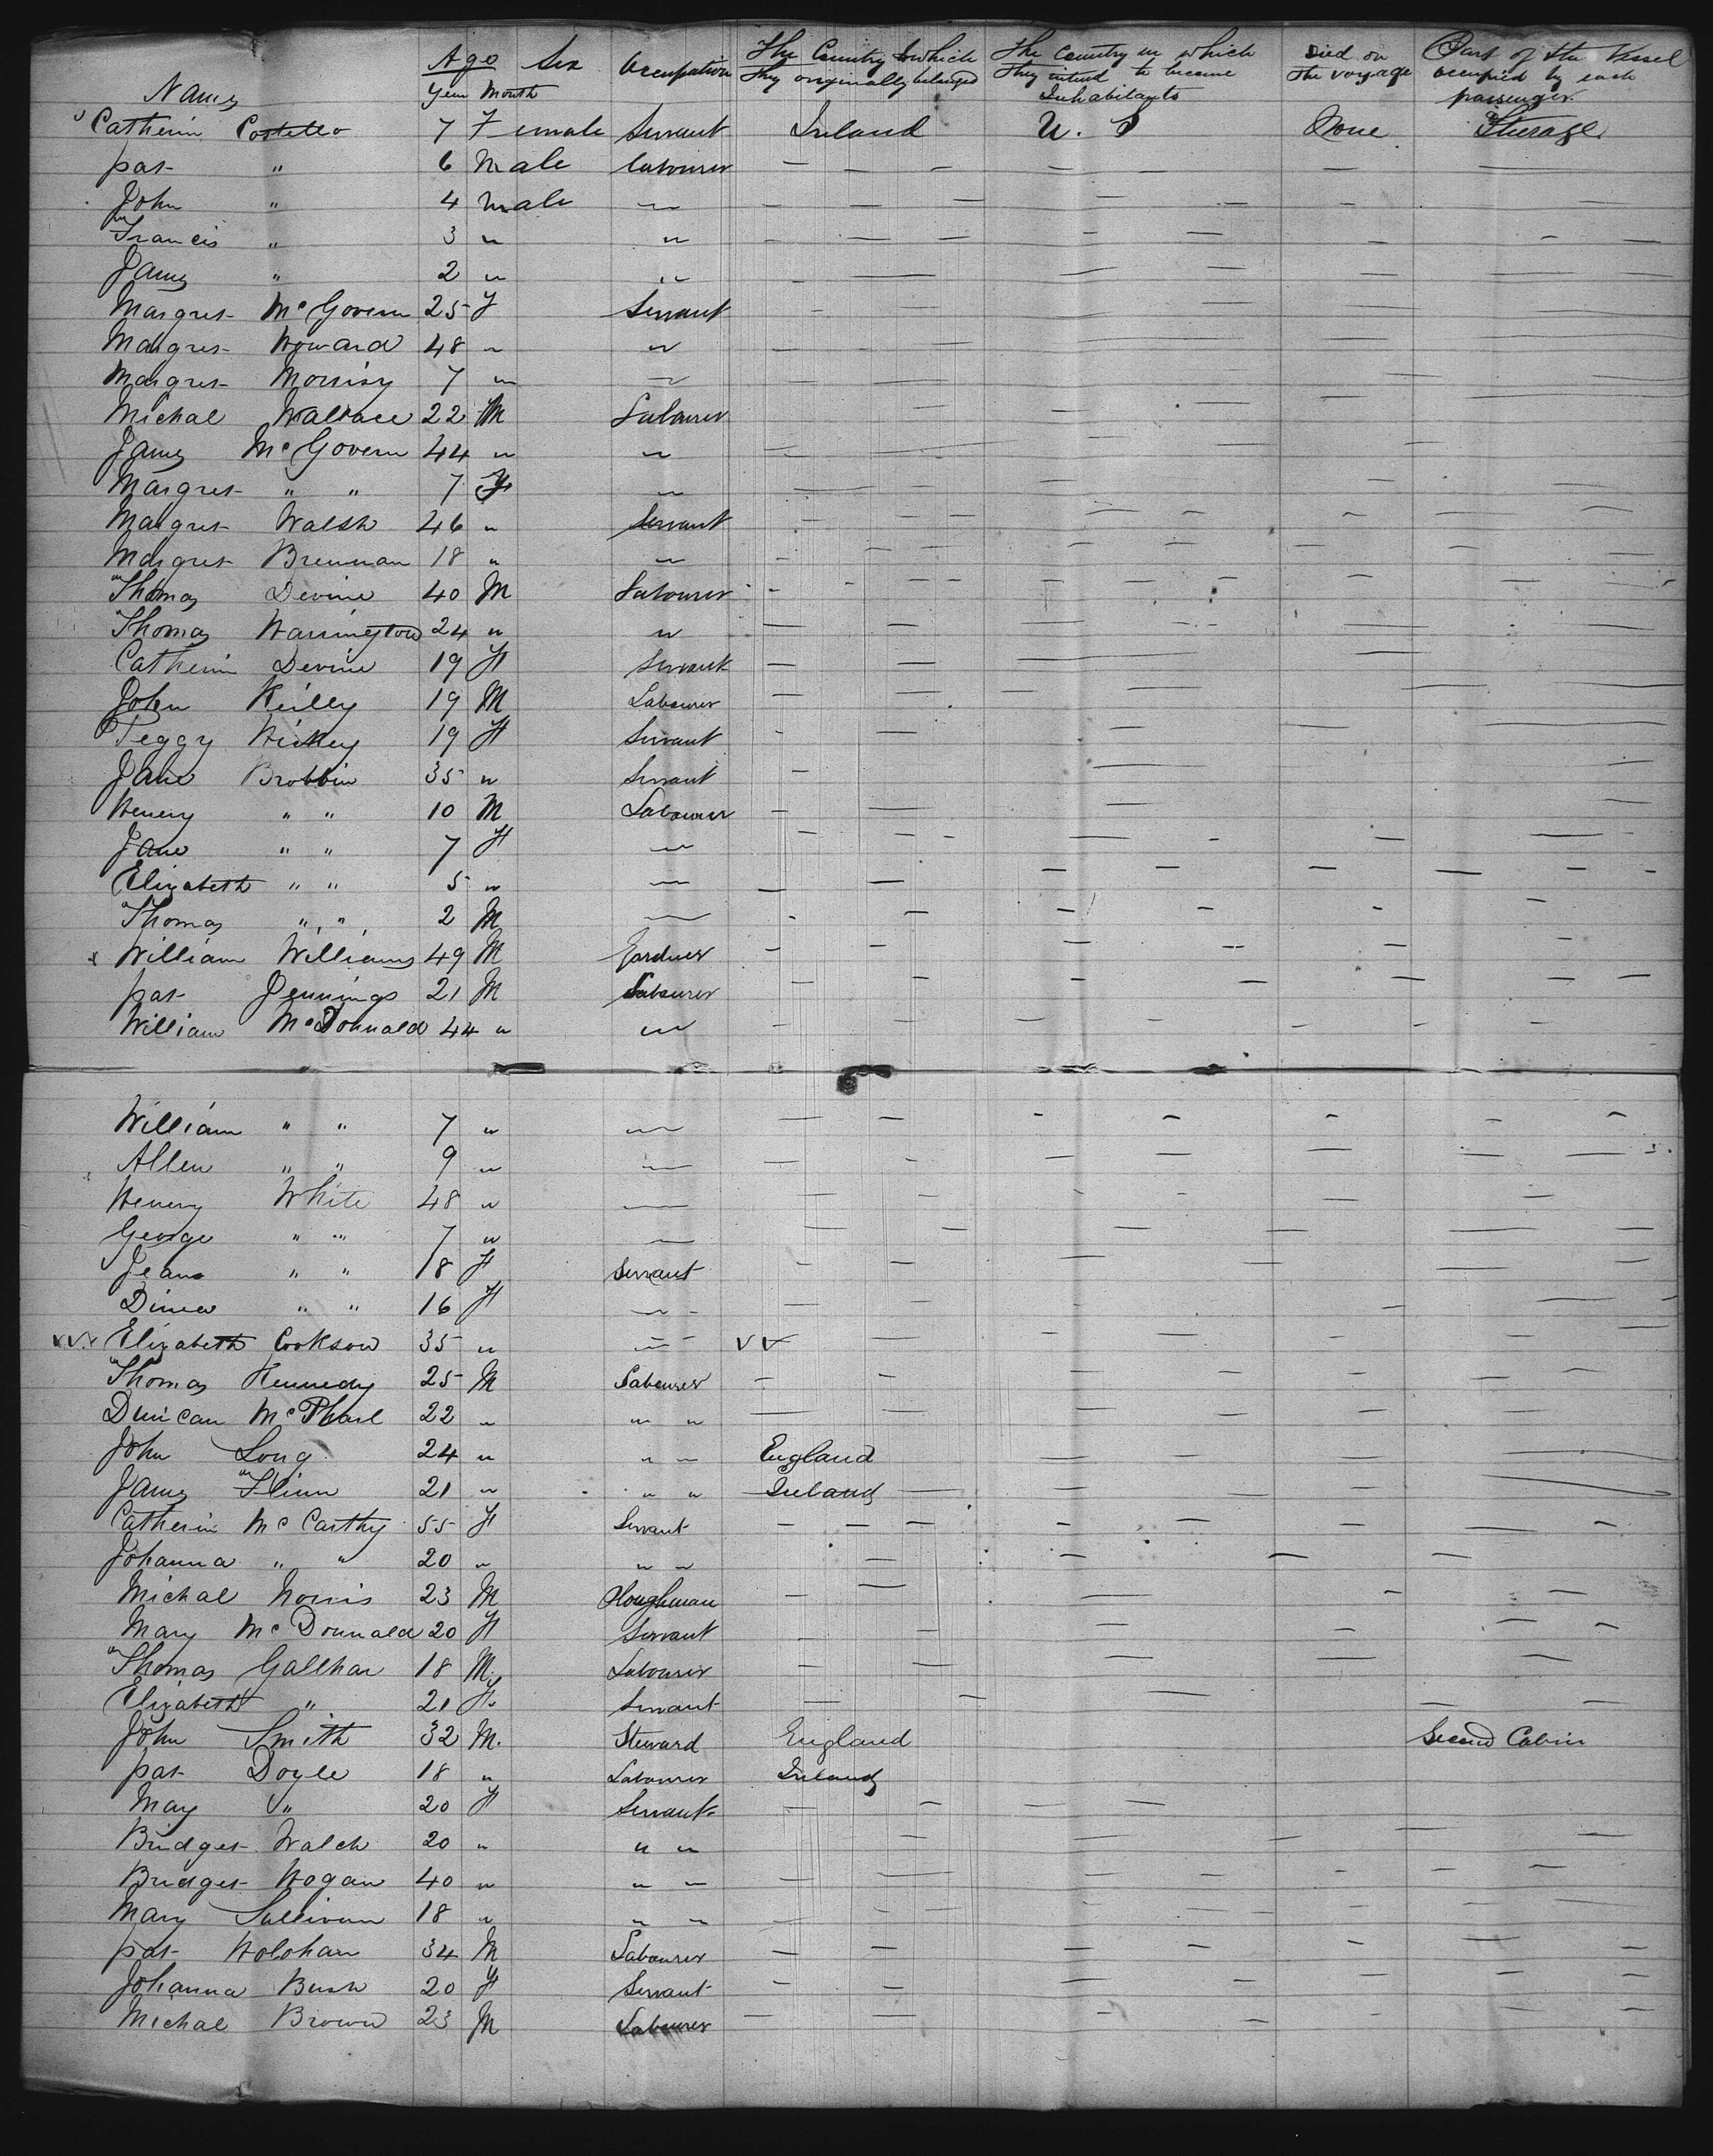 Names Age Sex Occupation The Country to which They originally belonged The Country in which They intend to become Inhabitants Died on The voyage Part of the Vessel occupied by each passenger
Year Month
Catherin Costello 7 Female Servant Ireland U. S None Sterage
pat " 6 Male labourer — — — — — — —
John " 4 male " — — — — — — —
Francis " 3 " " — — — — — — — —
James " 2 " " — — — — — —
Margret McGovern 25 F Servant — — —
Margret Howard 48 " " — — — — —
Margret Morrisy 7 " " — — — —
Michal Wallace 22 M Labourer — — — —
James McGovern 44 " " — — — — —
Margret " " 7 F " — — — — —
Margret Walsh 46 " Servant — — — — — — —
Margret Brennan 18 " " — — — — — — —
Thomas Devine 40 M Labourer — — — — — — —
Thomas Harrington 24 " " — — — — — —
Catherin Devine 19 F Servant — — — — —
John Reilly 19 M Labourer — — — — —
Peggy Hickey 19 F Servant — — — — —
Jane Brobbin 35 " Servant — — —
Henery " " 10 M Labourer — — — —
Jane " " 7 F " — — — — — — —
Elizabeth " " 5 " " — — — — — — — —
Thomas " " 2 M " — — — — — — —
William Williams 49 M Gardner — — — — — — —
pat Jennings 21 M Labourer — — — — — — —
William McDonnald 44 " " — — — — — — —
William " " 7 " " — — — — — — —
Allen " " 9 " " — — — — — —
Henery White 48 " " — — — — — —
George " " 7 " " — — — — — —
Jean " " 18 F Servant — — — — —
Dina " " 16 F " — — — — —
Elizabeth Cookson 35 " " — — — — —
Thomas Kennedy 25 M Labourer — — — — — —
Duncan McPharl 22 " " " — — — — — —
John Long 24 " " " England — — — —
James Flinn 21 " " " Ireland — — — — —
Catherin McCarthy 55 F Servant — — — — — — — —
Johanna " " 20 " " " — — — —
Michal Norris 23 M Ploughman — — — — — —
Mary McDonnald 20 F Servant — — — — —
Thomas Gallhar 18 M Labourer — — — — — —
Elizabeth " 21 F. Servant — — — — —
John Smith 32 M. Steward England Second Cabin
pat Doyle 18 " Labourer Ireland
May " 20 F Servant — — — —
Bridget Walch 20 " " " — — — —
Bridget Hogan 40 " " " — — — — — — —
Mary Sullivan 18 " " " — — — — — —
pat Holohan 34 M Labourer — — — — — —
Johanna Bush 20 F Servant — — — — — —
Michal Brown 23 M Labourer — — — — — —